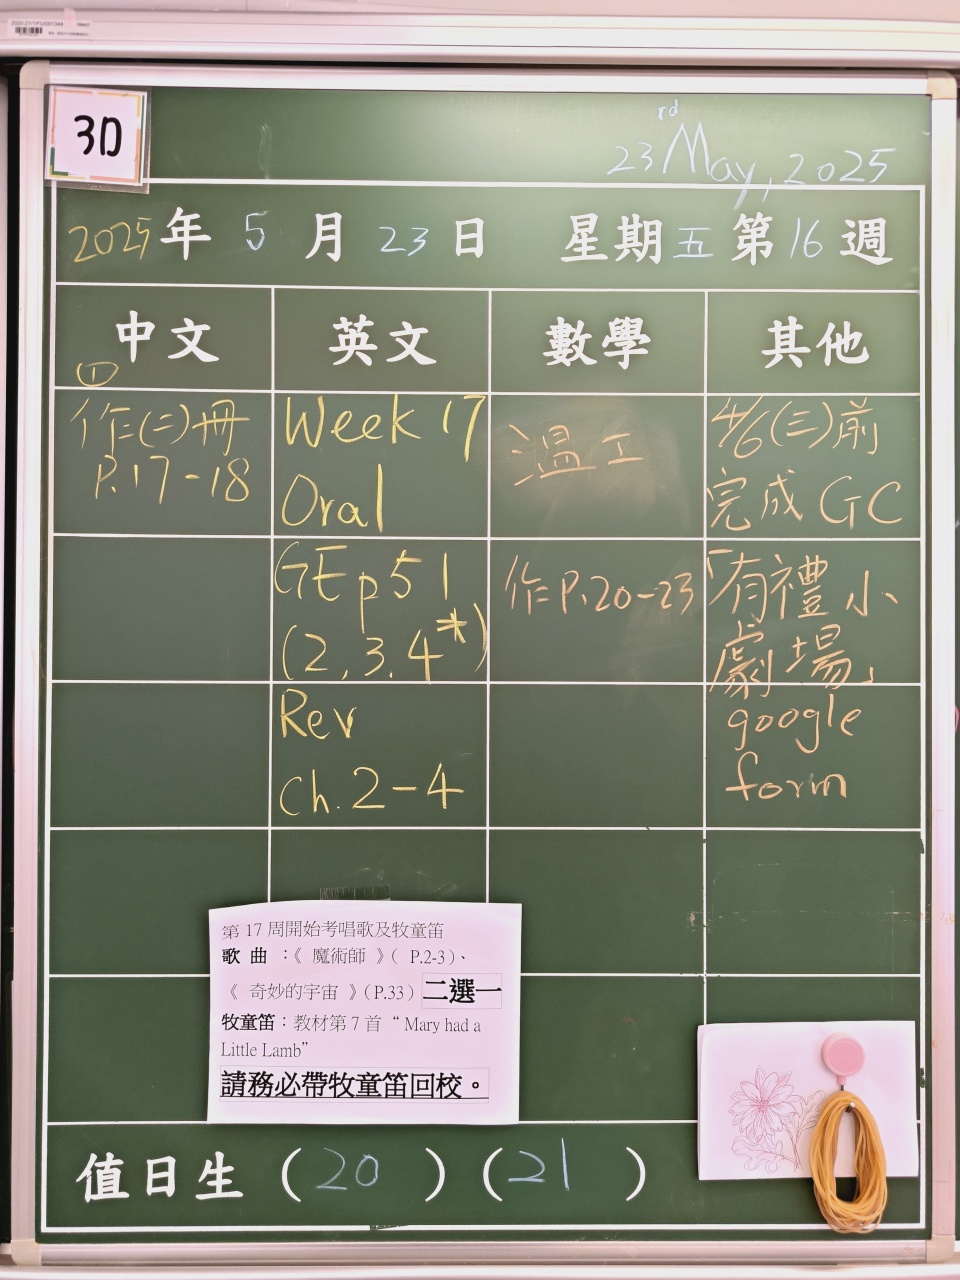 3D
23rd May, 2025
2025年 5 月 23 日 星期五第16週
中文
英文
數學
其他
①
作(二)冊
P.17-18
Week 17
Oral
GE p51
(2,3,4*)
Rev
ch.2-4
溫工
作P.20-23
4/6(三)前
完成GC
「有禮小
劇場」
google
form
第 17 周開始考唱歌及牧童笛
歌 曲 ：《 魔術師 》( P.2-3 )、
《 奇妙的宇宙 》( P.33 ) 二選一
牧童笛：教材第 7 首 “ Mary had a
Little Lamb”
請務必帶牧童笛回校。
值日生 (20 ) (21 )